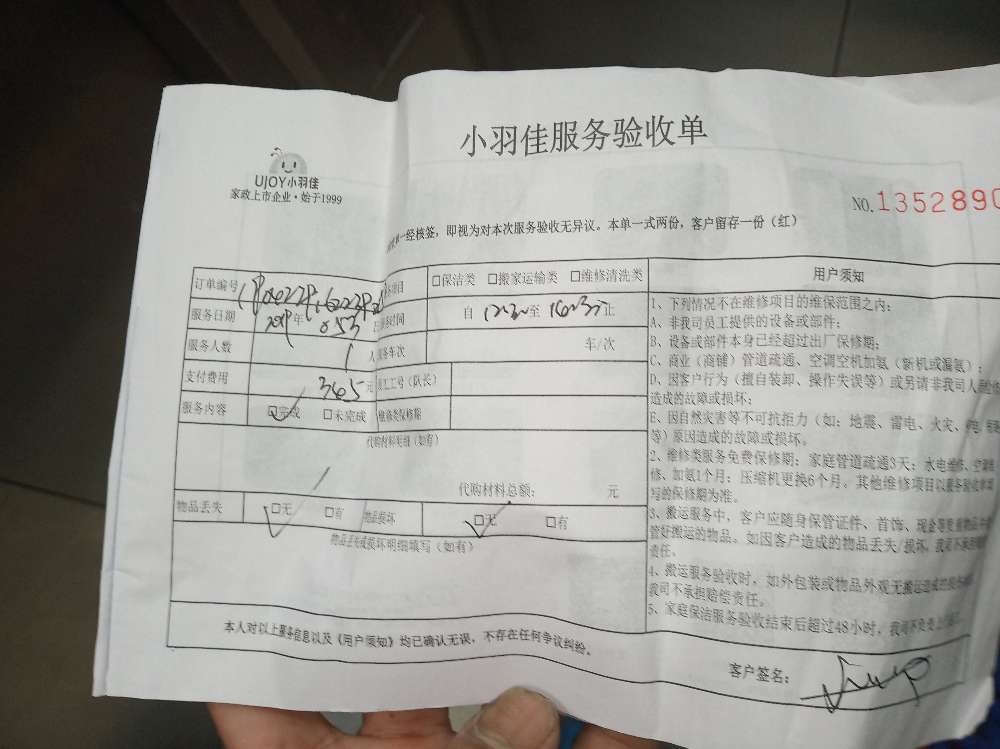 小羽佳服务验收单
UJOY小羽佳
家政上市企业·始于1999
NO.1352890
一经核签，即视为对本次服务验收无异议。本单一式两份，客户留存一份（红）
订单编号
项目 □保洁类 □搬家运输类 □维修清洗类
服务日期 年 时间 自 至 止
服务人数 1 人 服务车次 车/次
支付费用 365 元 员工工号（队长）
服务内容 □完成 □未完成 维修类保修期
代购材料明细（如有）
代购材料总额： 元
物品丢失 □无 □有 物品损坏 □无 □有
物品丢失或损坏明细填写（如有）
本人对以上服务信息以及《用户须知》均已确认无误，不存在任何争议纠纷。
用户须知
1、下列情况不在维修项目的维保范围之内：
A、非我司员工提供的设备或部件；
B、设备或部件本身已经超过出厂保修期；
C、商业（商铺）管道疏通、空调空机加氨（新机或漏氨）；
D、因客户行为（擅自装卸、操作失误等）或另请非我司人员
造成的故障或损坏；
E、因自然灾害等不可抗拒力（如：地震、雷电、火灾、
等）原因造成的故障或损坏。
2、维修类服务免费保修期：家庭管道疏通3天；水电维修、空调维
修、加氨1个月；压缩机更换6个月。其他维修项目以服务验收单填
写的保修期为准。
3、搬运服务中，客户应随身保管证件、首饰、现金等贵重物品并
管好搬运的物品。如因客户造成的物品丢失/损坏，我司不承担赔偿
责任。
4、搬运服务验收时，如外包装或物品外观无搬运造成的损伤痕迹
我司不承担赔偿责任。
5、家庭保洁服务验收结束后超过48小时，我司不负责
客户签名：